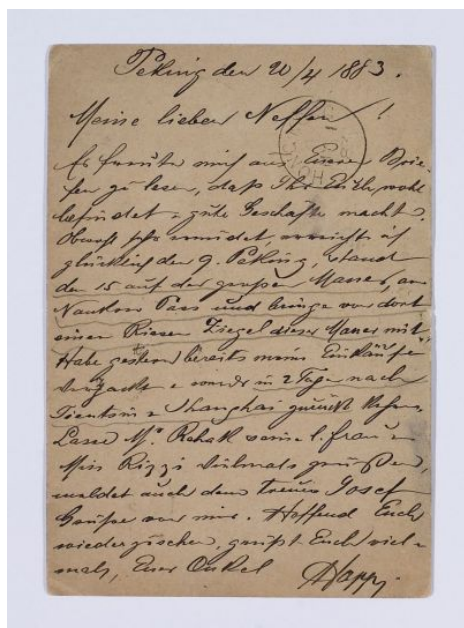 Peking den 20/4 1883.
Meine lieben Neffen!
Es freute mich aus Euren Brie-
fen zu lesen, daß Ihr Euch wohl
befindet & gute Geschäfte macht.
Obwohl sehr ermüdet, erreichte ich
glücklich den 9. Peking, stand
den 15 auf der großen Mauer, am
Nankow Pass und bringe von dort
einen Riesen Ziegel dieser Mauer mit.
Habe gestern bereits meine Einkäufe
verpackt & werde in 2 Tage nach
Tientsin & Shanghai zurück kehren.
Lasse Mr. Rehak seine l. frau &
Miss Rizzi vielmals grüßen,
meldet auch dem treuen Josef
Grüße von mir. Hoffend Euch
wiederzusehen, grüßt Euch viel-
mals, Euer Onkel